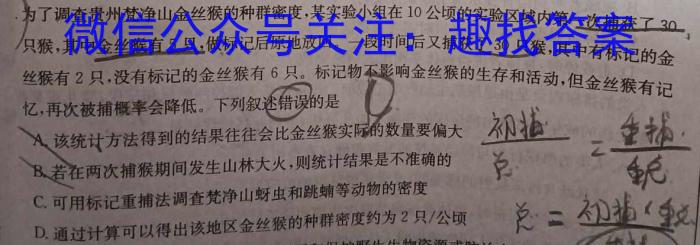 为了调查贵州梵净山金丝猴的种群密度,某实验小组在10公顷的实验区域内第一次捕获了30
只猴,其中金丝猴有 只,做标记后原地放回,一段时间后又捕获了30只猴,其中有标记的金
微信公众号关注:趣找答案
丝猴有2只,没有标记的金丝猴有6只。标记物不影响金丝猴的生存和活动,但金丝猴有记
忆,再次被捕概率会降低。下列叙述错误的是
A.该统计方法得到的结果往往会比金丝猴实际的数量要偏大
B.若在两次捕猴期间发生山林大火,则统计结果是不准确的
C.可用标记重捕法调查梵净山蚜虫和跳蝻等动物的密度
D.通过计算可以得出该地区金丝猴的种群密度约为2只/公顷
初捕/总 = 重捕/
总 = 初捕